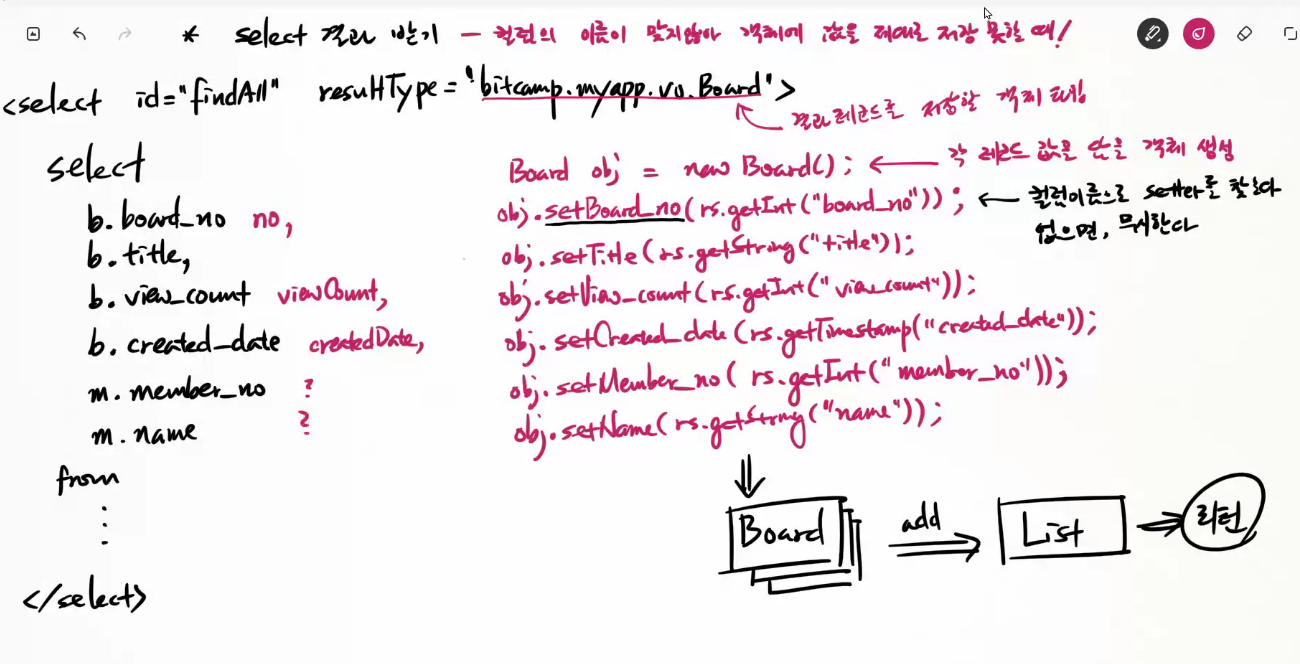 * select 결과 받기 — 컬럼의 이름이 맞지않아 객체에 값을 제대로 저장 못할 때!
<select id="findAll" resultType="bitcamp.myapp.vo.Board">
결과 레코드를 저장할 객체 타입
select
Board obj = new Board(); ← 각 레코드 값을 담을 객체 생성
b.board_no no,
obj.setBoard_no(rs.getInt("board_no")); ← 컬럼이름으로 setter를 찾는다
없으면, 무시한다
b.title,
obj.setTitle(rs.getString("title"));
b.view_count viewCount,
obj.setView_count(rs.getInt("view_count"));
b.created_date createdDate,
obj.setCreated_date(rs.getTimestamp("created_date"));
m.member_no ?
obj.setMember_no(rs.getInt("member_no"));
m.name ?
obj.setName(rs.getString("name"));
from
⋮
Board add List 리턴
</select>